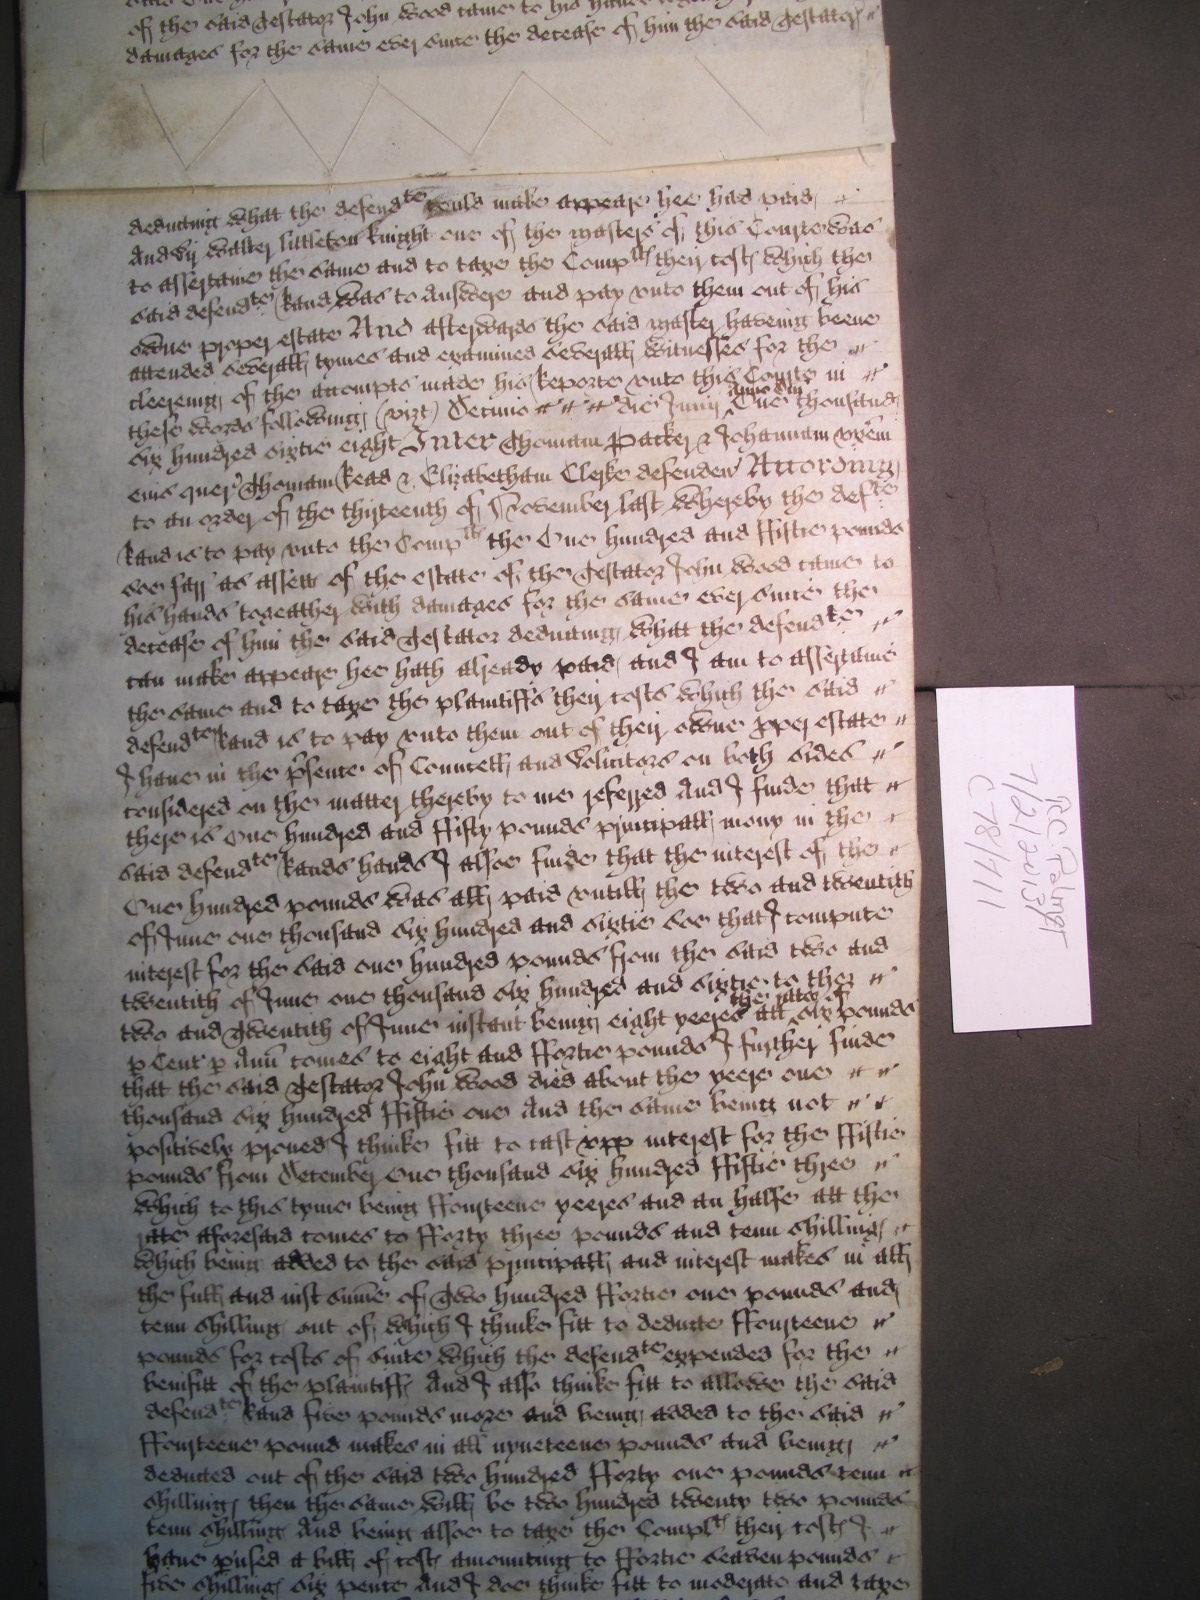 of the said Testator John Wood came to his hands
damages for the same ever since the decease of him the said Testator
deducting what the defendte could make appeare hee had paid
And Sr Walter Littleton Knight one of the Masters of this Courte was
to assertaine the same and to taxe the Complts their costs which the
said defendte Rand was to Answere and pay vnto them out of his
owne proper estate And afterwards the said master haveing beene
attended severall tymes and examined severall witnesses for the
cleereing of the accompts made his Reporte vnto this Courte in
these words following (vizt) Decimo die Junij Anno Dni One thousand
six hundred sixtie eight Inter Thomam Packer & Johannam vxem
eius quer Thomam Rand & Elizabetham Clerke defenden According
to an order of the thirteenth of November last whereby the defte
Rand is to pay vnto the Complts the One hundred and Fiftie pounds
soe farr as assetts of the estate of the Testator John Wood came to
his hands togeather with damages for the same ever since the
decease of him the said Testator deducting what the defendte
can make appeare hee hath already paid and I am to assertaine
the same and to taxe the plaintiffs their costs which the said
defendte Rand is to pay vnto them out of their owne pper estate
I haue in the psence of Councell and Sollicitors on both sides
considered on the matter thereby to me referred And I finde that
there is One hundred and Fifty pounds principall mony in the
said defendte Rands hands I alsoe finde that the interest of the
One hundred pounds was all paid vntill the two and twentith
of June one thousand six hundred and sixtie soe that I compute
interest for the said one hundred pounds from the said two and
twentith of June one thousand six hundred and sixtie to the
two and Twentith of June instant being eight yeeres att the rate of six pounds
p Cent p Ann comes to eight and Fortie pounds I further finde
that the said Testator John Wood died about the yeere one
thousand six hundred Fiftie one And the same being not
positively proued I thinke fitt to cast vpp interest for the Fiftie
pounds from December One thousand six hundred Fiftie three
which to this tyme being Fourteene yeeres and an halfe att the
rate aforesaid comes to Forty three pounds and tenn shilling
which being added to the said principall and interest makes in all
the full and iust summe of Two hundred Fortie one pounds and
tenn shilling out of which I thinke fitt to deducte Fourteene
pounds for costs of suite which the defendte expended for the
benifitt of the plaintiff And I also thinke fitt to allowe the said
defendte Rand five pounds more and being added to the said
Fourteene pound makes in all nyneteene pounds and being
deducted out of the said two hundred Forty one pounds tenn
shilling then the same will be two hundred twenty two pounds
tenn shilling And being alsoe to taxe the Complts their costs I
haue pused a bill of costs amounting to Fortie seaven pounds
five shilling six pence And I doe thinke fitt to moderate and taxe
RC. Palmer
7/2/2013
C78/711